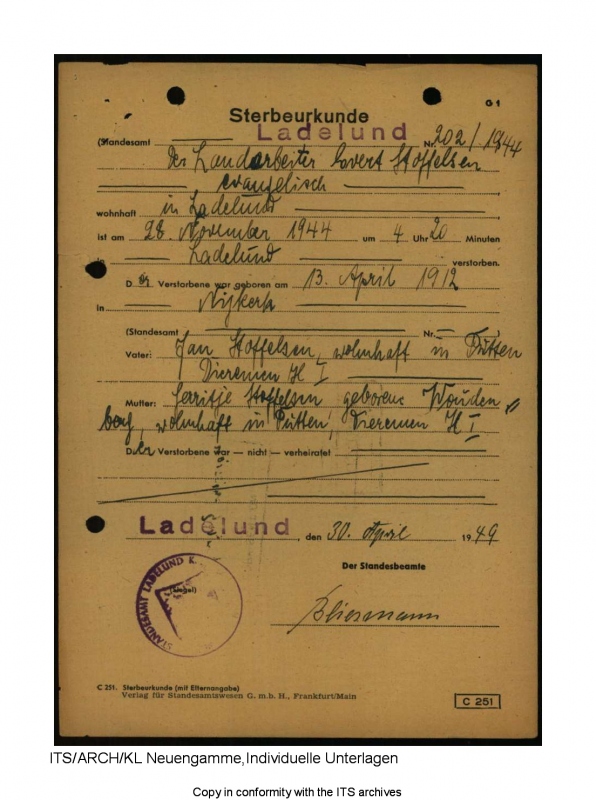 G 1
Sterbeurkunde
(Standesamt Ladelund Nr. 202/1944
Der Landarbeiter Evert Stoffelsen
evangelisch
wohnhaft in Ladelund
ist am 28. November 1944 um 4 Uhr 20 Minuten
in Ladelund verstorben.
Der Verstorbene war geboren am 13. April 1912
in Nijkerk
(Standesamt Nr.
Vater: Jan Stoffelsen, wohnhaft in Putten
Dieremen H I
Mutter: Gerritje Stoffelsen geborene Wouden
berg, wohnhaft in Putten, Dieremen H I
Der Verstorbene war — nicht — verheiratet
Ladelund, den 30. April 1949
Der Standesbeamte
(Siegel)
STANDESAMT LADELUND K.
C 251. Sterbeurkunde (mit Elternangabe)
Verlag für Standesamtswesen G. m. b. H., Frankfurt/Main
C 251
ITS/ARCH/KL Neuengamme, Individuelle Unterlagen
Copy in conformity with the ITS archives